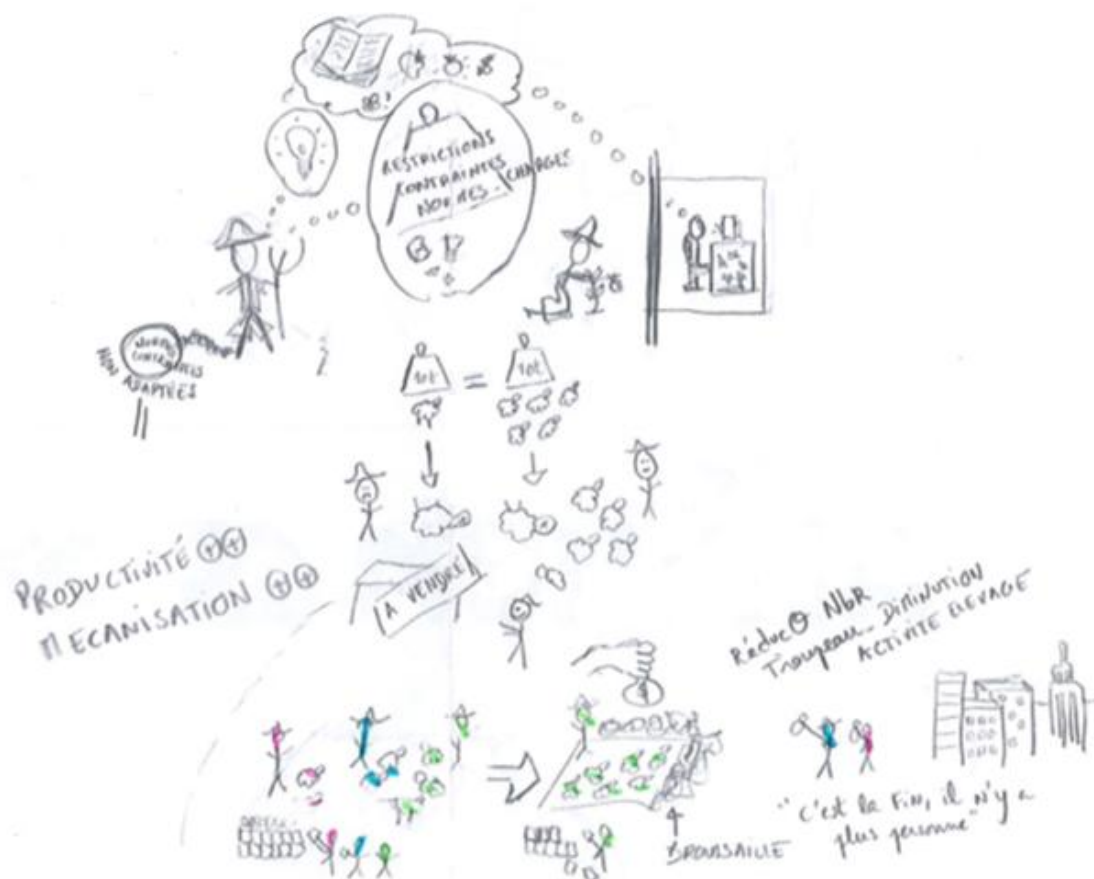 RESTRICTIONS
CONTRAINTES
NORMES - CHARGES
NORMES
CONTRAINTES
NON ADAPTÉES
10t = 10t
PRODUCTIVITÉ ⊕⊕
MECANISATION ⊕⊕
A VENDRE
Réduc⊖ NbR
Troupeau_ DIMINUTION
ACTIVITE ELEVAGE
"C'est la Fin, il n'y a
plus personne"
BROUSSAILLE